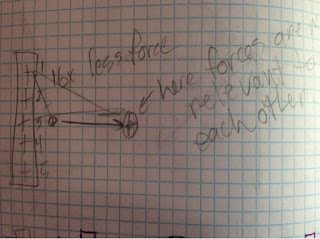 16x less force
here forces are
relevant to
each other
+ 1
+ 2
+ 3
+ 4
+ 5
+